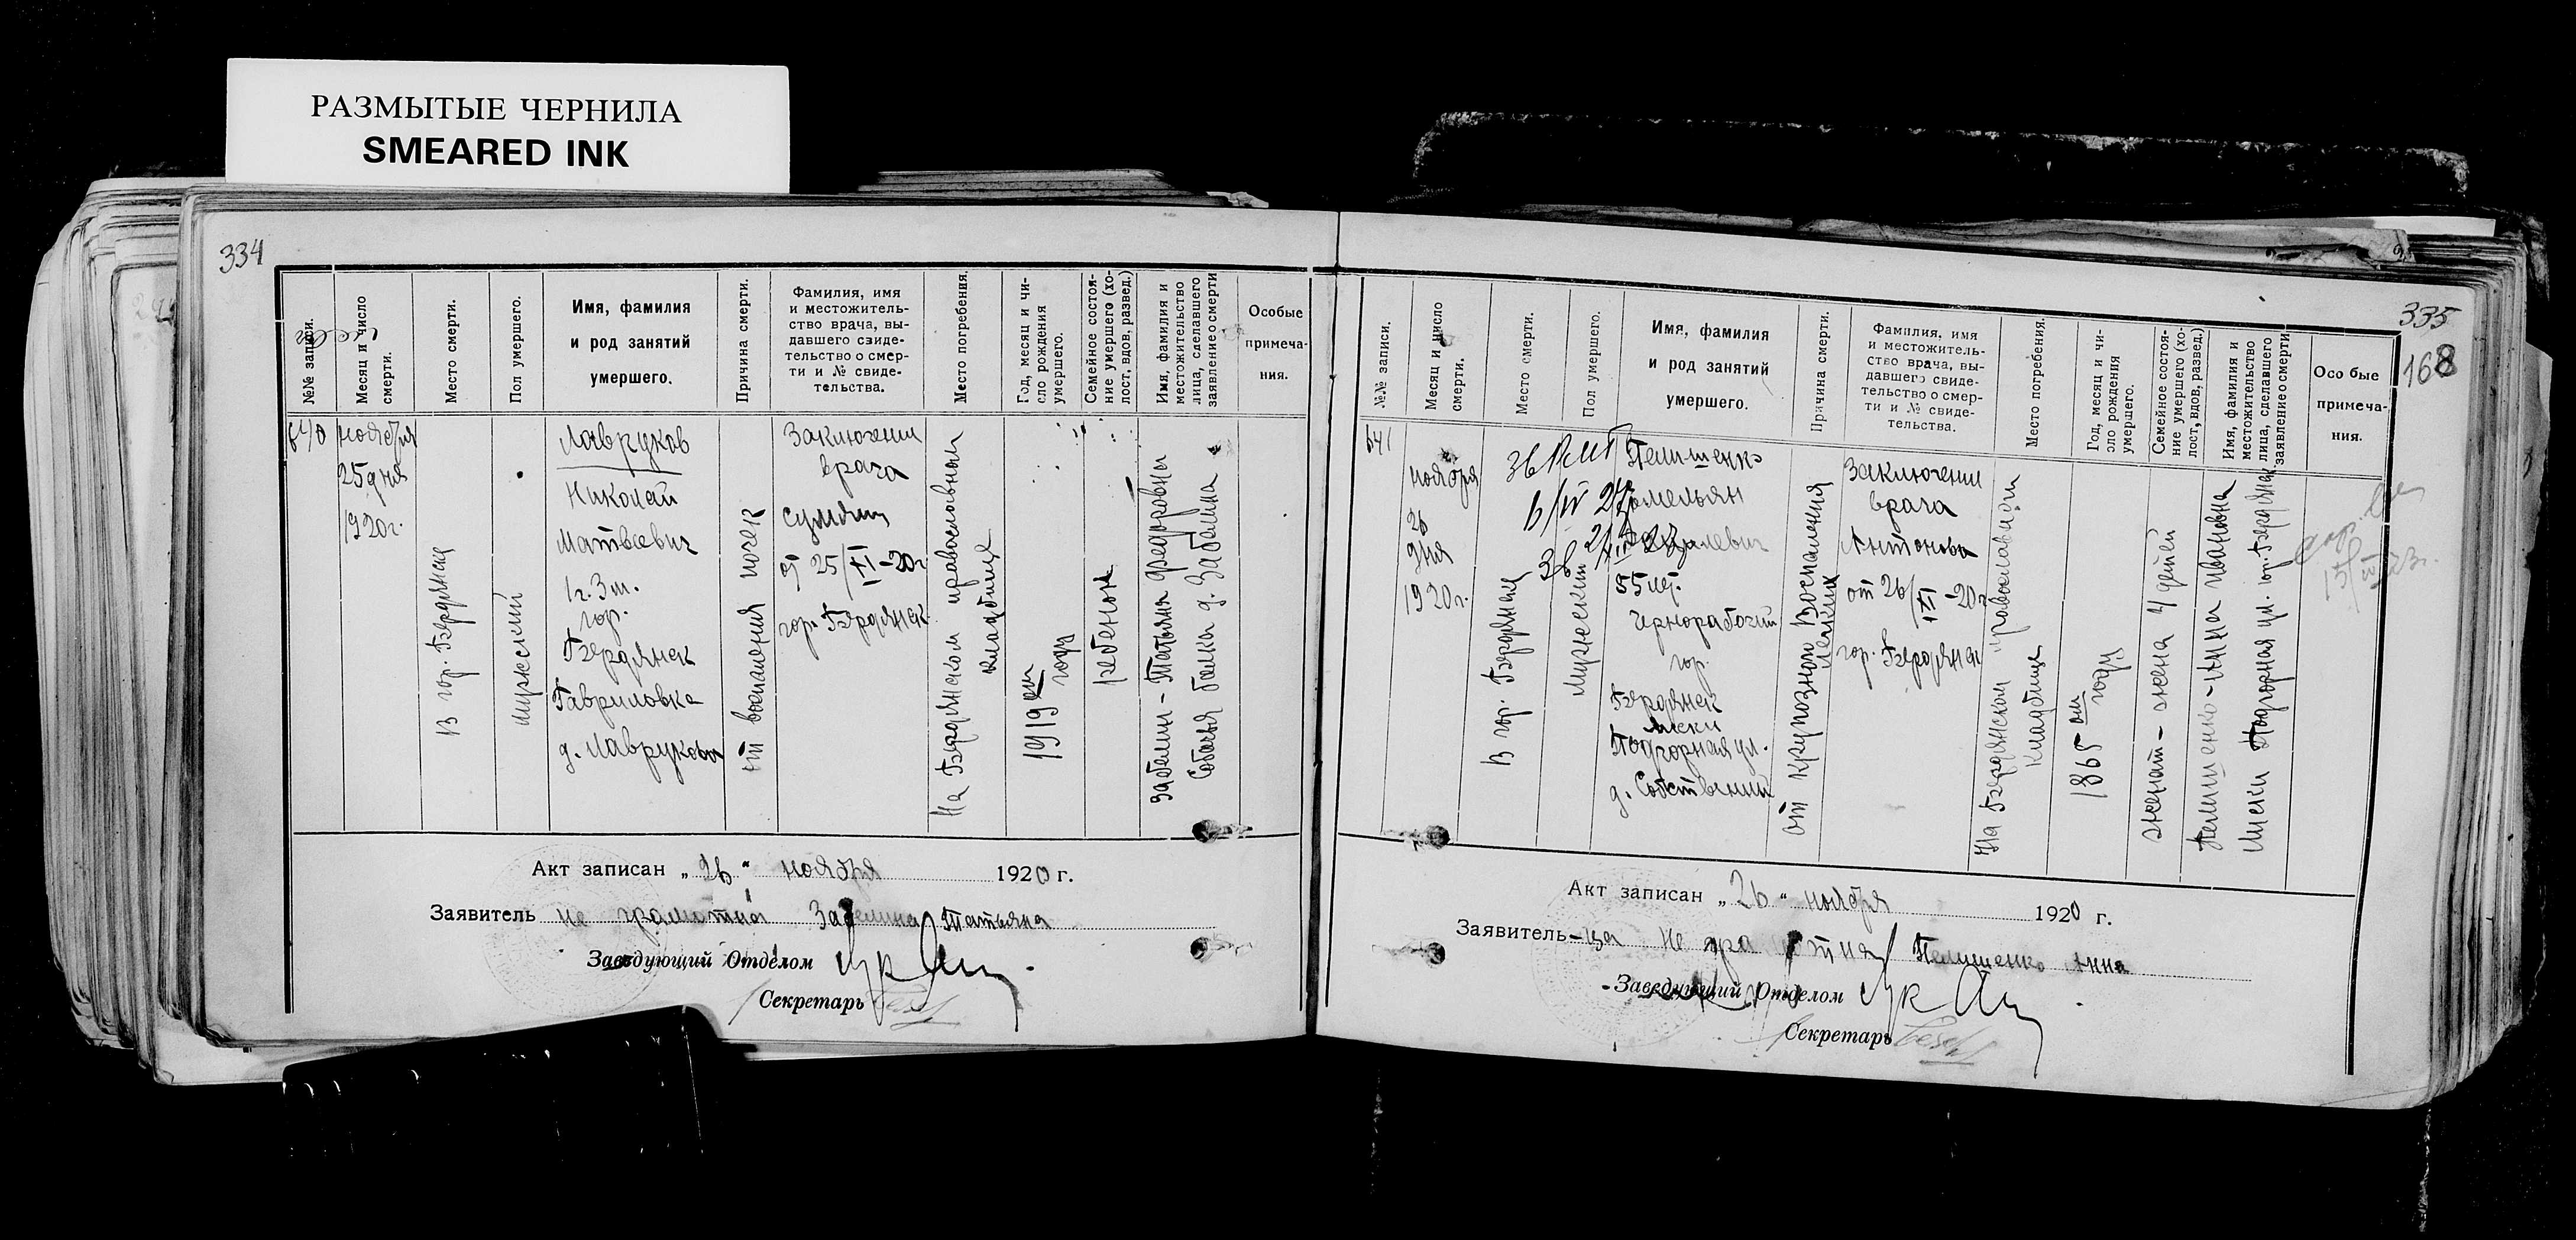 РАЗМЫТЫЕ ЧЕРНИЛА
SMEARED INK
334
№№ записи.
Месяц и число смерти.
Место смерти.
Пол умершего.
Имя, фамилия
и род занятий
умершего.
Причина смерти.
Фамилия, имя
и местожитель-
ство врача, вы-
давшего свиде-
тельство о смер-
ти и № свиде-
тельства.
Место погребения.
Год, месяц и чи-
сло рождения
умершего.
Семейное состоя-
ние умершего (хо-
лост, вдов, развед.)
Имя, фамилия и
местожительство
лица, сделавшего
заявление о смерти
Особые
примеча-
ния.
640
ноября
25 дня
1920 г.
В гор. Бердянске
мужеский
Лавруков
Николай
Матвеевич
1 г. 3 м.
гор.
Бердянск
Гавриловка
д. Лаврукова
от воспаления почек
Заключении
врача
от 25/XI-20 г
гор. Бердянск
На Бердянском православном
кладбище
1919 ом
году
ребенок
Забелин - Татьяна Федоровна
Собачья балка д. Забелина
Акт записан „26“ ноября 1920 г.
Заявитель не грамотна Забелина Татьяна
Заведующий Отделом
Секретарь
335
168
№№ записи.
Месяц и число
смерти.
Место смерти.
Пол умершего.
Имя, фамилия
и род занятий
умершего.
Причина смерти.
Фамилия, имя
и местожитель-
ство врача, вы-
давшего свиде-
тельство о смер-
ти и № свиде-
тельства.
Место погребения.
Год, месяц и чи-
сло рождения
умершего.
Семейное состоя-
ние умершего (хо-
лост, вдов, развед.)
Имя, фамилия и
местожительство
лица, сделавшего
заявление о смерти.
Особые
примеча-
ния.
641
ноября
26
дня
1920 г.
В гор. Бердянске
Мужеский
Пелишенко
Омельян
55 лет
Чернорабочий
гор.
Бердянск
Лиски
Подгорная ул.
д. Собственный
от Крупозного Воспаления
легких
Заключении
врача
Антонова
от 26/XI-20 г
гор. Бердянск
На Бердянском православном
Кладбище
1865 ом
году
женат - жена 4 детей
Пелишенко - Анна Ивановна
Лиски Подгорная ул. гор. Бердянск
Акт записан „26“ ноября 1920 г.
Заявитель-ца Не грамотна Пелишенко Анна
Заведующий Отделом
Секретарь